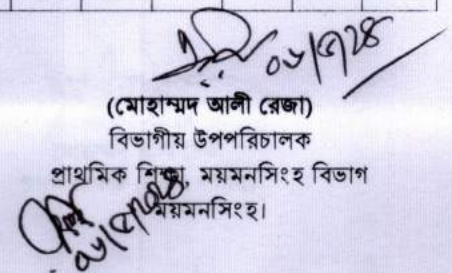 ০৬/৫/২৪
(মোহাম্মদ আলী রেজা)
বিভাগীয় উপপরিচালক
প্রাথমিক শিক্ষা, ময়মনসিংহ বিভাগ
ময়মনসিংহ।